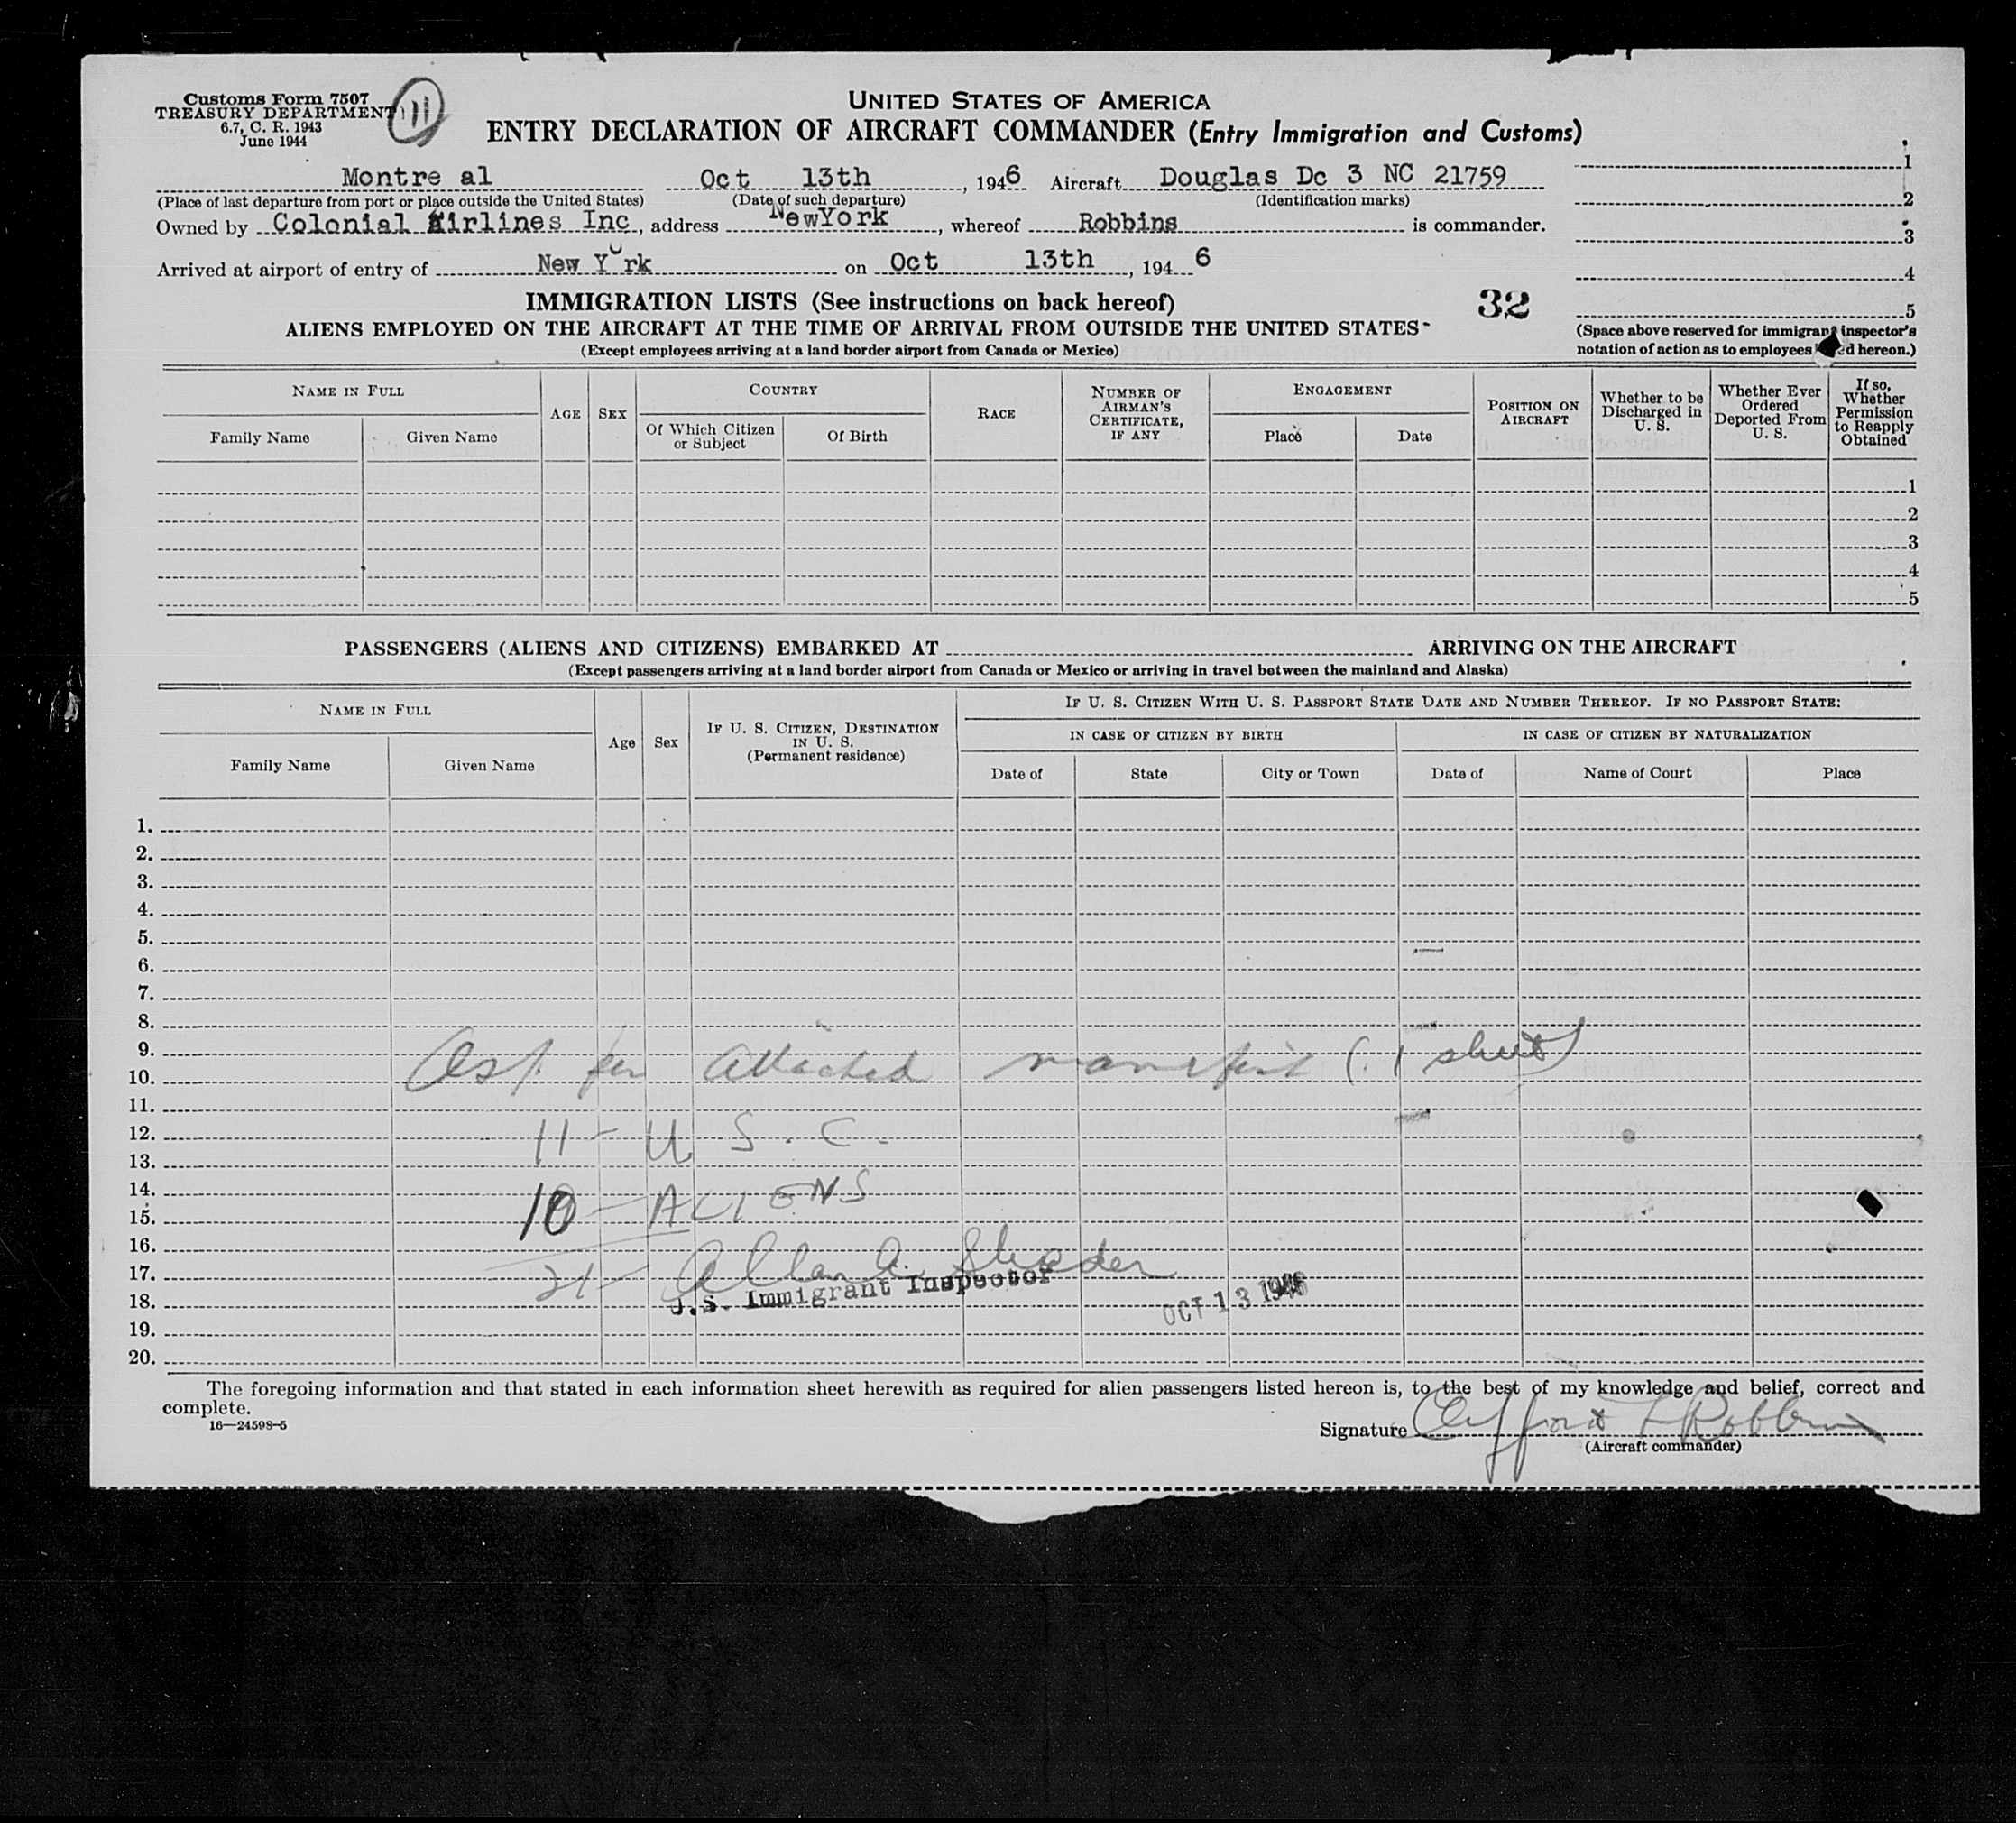 Customs Form 7507
TREASURY DEPARTMENT
6.7, C. R. 1943
June 1944
11
UNITED STATES OF AMERICA
ENTRY DECLARATION OF AIRCRAFT COMMANDER (Entry Immigration and Customs)
Montre al Oct 13th, 1946 Aircraft Douglas Dc 3 NC 21759
(Place of last departure from port or place outside the United States) (Date of such departure) (Identification marks)
Owned by Colonial Airlines Inc, address NewYork, whereof Robbins is commander.
Arrived at airport of entry of New York on Oct 13th, 194 6
1
2
3
4
5
(Space above reserved for immigrant inspector's
notation of action as to employees hereon.)
IMMIGRATION LISTS (See instructions on back hereof)
32
ALIENS EMPLOYED ON THE AIRCRAFT AT THE TIME OF ARRIVAL FROM OUTSIDE THE UNITED STATES
(Except employees arriving at a land border airport from Canada or Mexico)
NAME IN FULL
Family Name
Given Name
AGE
SEX
COUNTRY
Of Which Citizen or Subject
Of Birth
RACE
NUMBER OF AIRMAN'S CERTIFICATE, IF ANY
ENGAGEMENT
Place
Date
POSITION ON AIRCRAFT
Whether to be Discharged in U. S.
Whether Ever Ordered Deported From U. S.
If so, Whether Permission to Reapply Obtained
1
2
3
4
5
PASSENGERS (ALIENS AND CITIZENS) EMBARKED AT ARRIVING ON THE AIRCRAFT
(Except passengers arriving at a land border airport from Canada or Mexico or arriving in travel between the mainland and Alaska)
NAME IN FULL
Family Name
Given Name
Age
Sex
IF U. S. CITIZEN, DESTINATION IN U. S.
(Permanent residence)
IF U. S. CITIZEN WITH U. S. PASSPORT STATE DATE AND NUMBER THEREOF. IF NO PASSPORT STATE:
IN CASE OF CITIZEN BY BIRTH
IN CASE OF CITIZEN BY NATURALIZATION
Date of
State
City or Town
Date of
Name of Court
Place
1.
2.
3.
4.
5.
6.
7.
8.
9.
10. per attached manifest (1 sheet)
11.
12. 11 - U.S.C.
13.
14.
15. 10 - ALIENS
16.
17. 21 -
18. U.S. Immigrant Inspector OCT 13 1946
19.
20.
The foregoing information and that stated in each information sheet herewith as required for alien passengers listed hereon is, to the best of my knowledge and belief, correct and
complete.
16—24598-5
Signature Clifford F Robbins
(Aircraft commander)